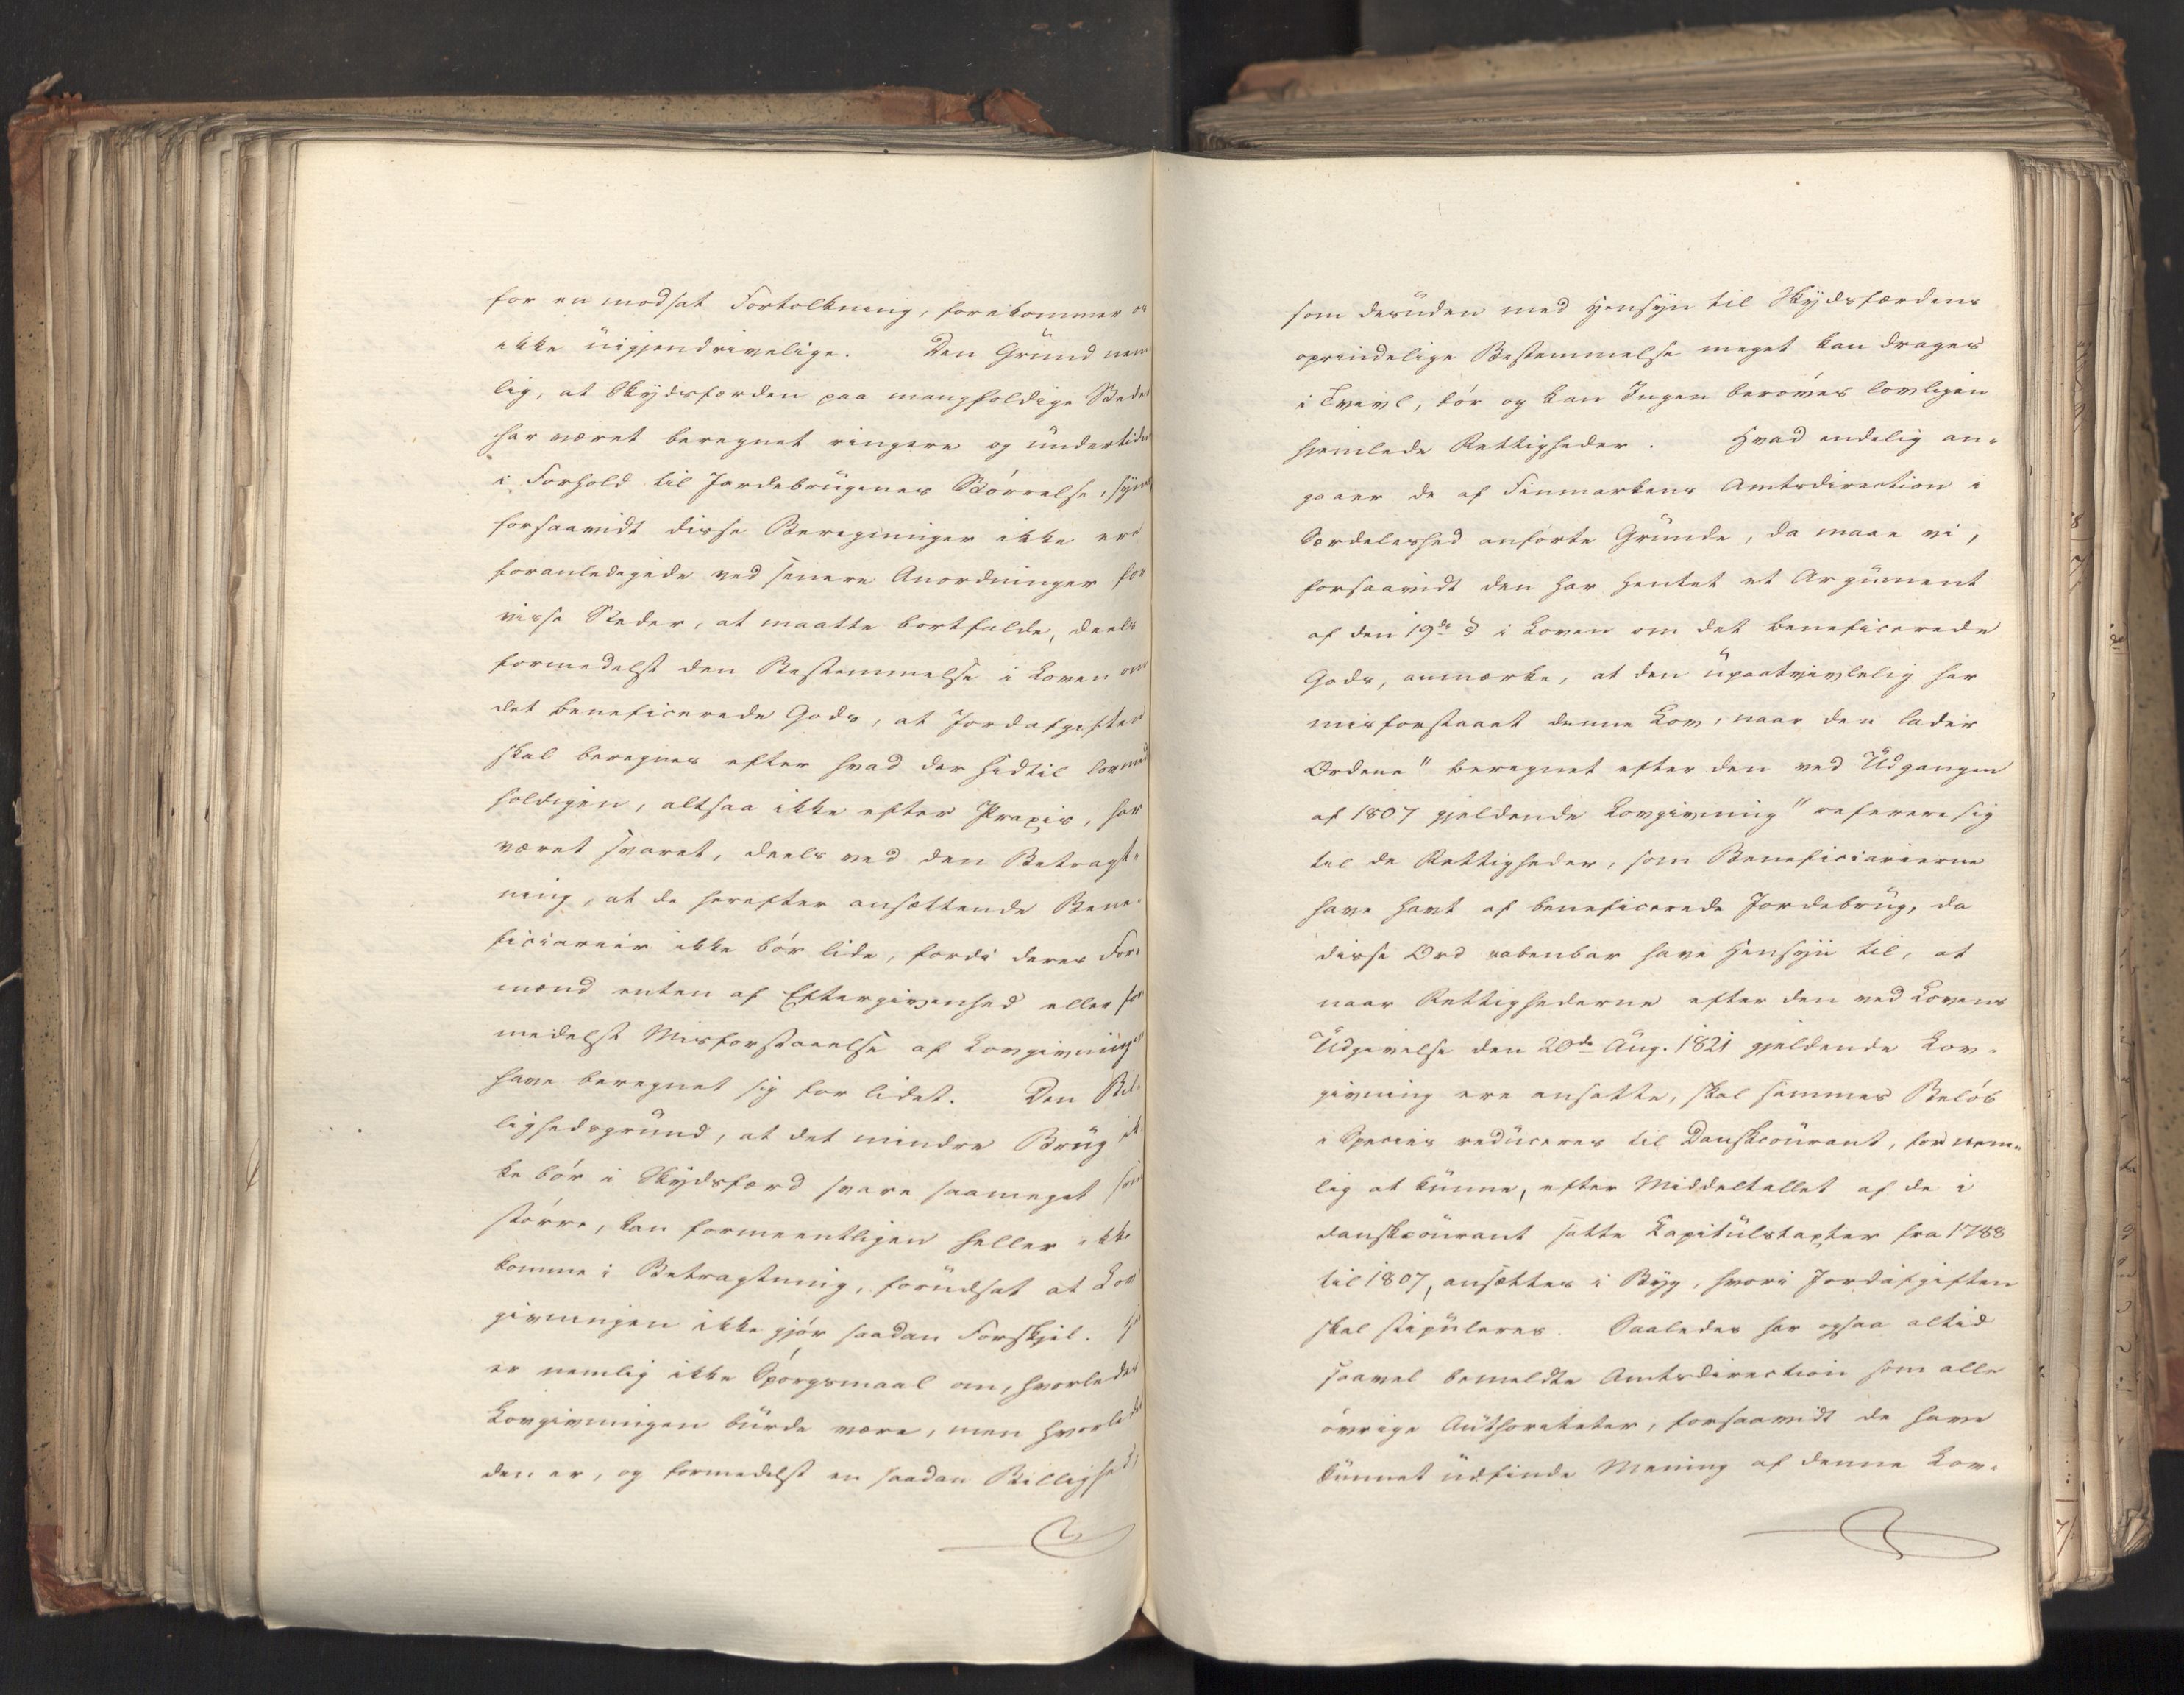 for en modsat Fortolkning, forekommer os
ikke uigjendrivelige. Den Grund nem
lig, at Skydsfærden paa mangfoldige Steder
har været beregnet ringere og undertiden
i Forhold til Jordebrugenes Størrelse, synes
forsaavidt disse Beregninger ikke ere
foranledigede ved senere Anordninger for
visse Steder, at maatte bortfalde, deels
formedelst den Bestemmelse i Loven om
det beneficerede Gods, at Jordafgiften
skal beregnes efter hvad der hidtil lovmed
holdigen, altsaa ikke efter Praxis, har
været svaret, deels ved den Betragt-
ning, at de herefter ansættende Bene-
ficiarier ikke bør lide, fordi deres For-
mænd enten af Eftergivenhed eller for
medelst Misforstaaelse af Lovgivningen
have beregnet sig for lidet. Den Bil-
lighedsgrund, at det mindre Brug ik
ke bør i Skydsfærd svare saameget som
større, kan formeentligen heller ikke
komme i Betragtning, forudsat at Lov
givningen ikke gjør saadan Forskjel.
er nemlig ikke Spørgsmaal om, hvorledes
Lovgivningen burde være, men hvorledes
den er, og formedelst en saadan Billighed,
som desuden med Hensyn til Skydsfærdens
oprindelige Bestemmelse meget kan drages
i Tvivl, bør og kan Ingen berøves lovligen
hjemlede Rettigheder. Hvad endelig an-
gaaer de af Finmarkens Amtsdirection i
Særdeleshed anførte Grunde, da maae vi,
forsaavidt den har hentet et Argument
af den 19de § i Loven om det beneficerede
Gods, anmærke, at den upaatvivlelig har
misforstaaet denne Lov, naar den lader
Ordene "beregnet efter den ved Udgangen
af 1807 gjeldende Lovgivning" referere sig
til de Rettigheder, som Beneficiarierne
have havt af beneficerede Jordebrug, da
disse Ord aabenbar have Hensyn til, at
naar Rettighederne efter den ved Lovens
Udgivelse den 20de Aug. 1821 gjeldende Lov-
givning ere ansatte, skal sammes Beløb
i Species reduceres til Danskcourant, for nem-
lig at kunne, efter Middeltallet af de i
danskcourant satte Kapitulstaxter fra 1788
til 1807, ansættes i Byg, hvori Jordafgiften
skal stipuleres. Saaledes har ogsaa altid
saavel bemeldte Amtsdirection som alle
øvrige Authoriteter, forsaavidt de have
kunnet udfinde Mening af denne Lov-